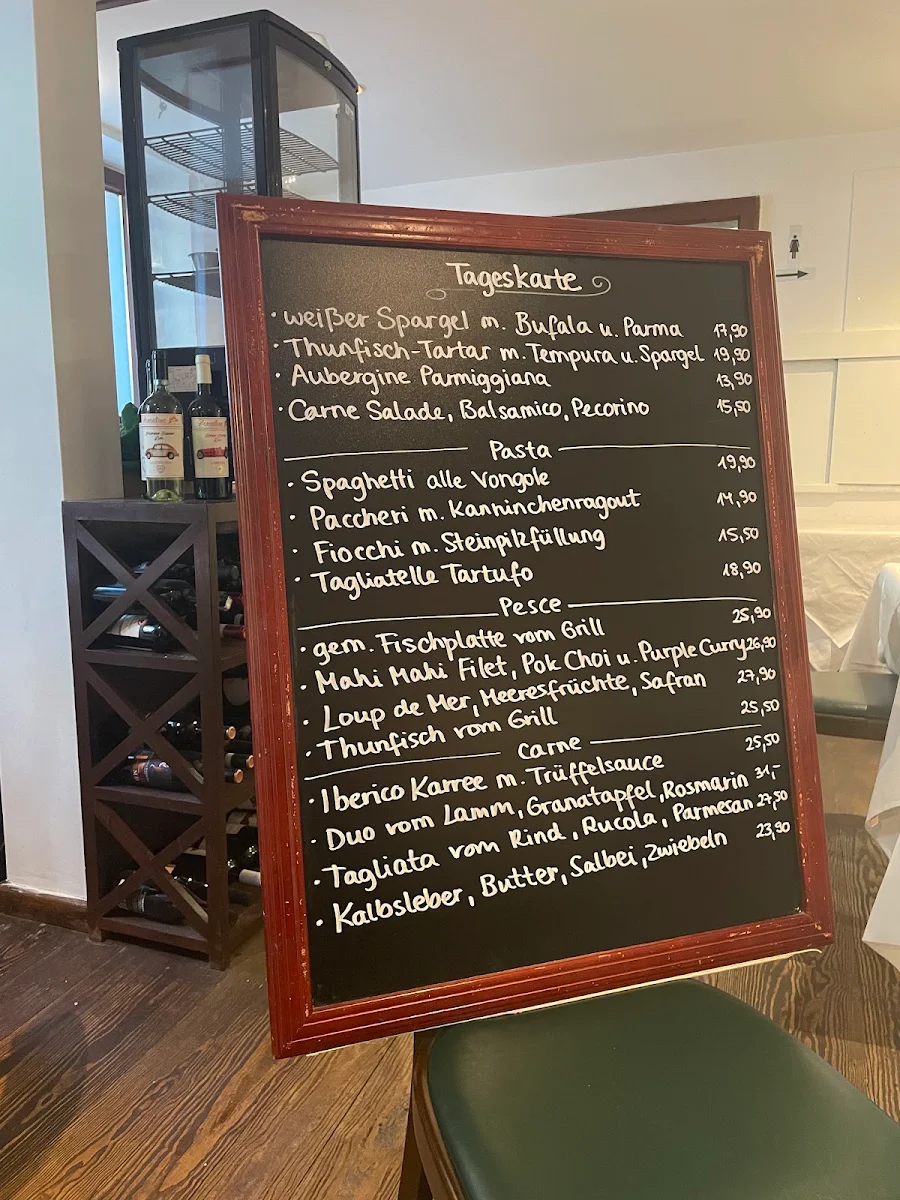 Tageskarte
· weißer Spargel m. Bufala u. Parma 17,90
· Thunfisch-Tartar m. Tempura u. Spargel 19,90
· Aubergine Parmiggiana 13,90
· Carne Salade, Balsamico, Pecorino 15,50
Pasta
· Spaghetti alle Vongole 19,90
· Paccheri m. Kanninchenragout 14,90
· Fiocchi m. Steinpilzfüllung 15,50
· Tagliatelle Tartufo 18,90
Pesce
· gem. Fischplatte vom Grill 25,90
· Mahi Mahi Filet, Pok Choi u. Purple Curry 26,90
· Loup de Mer, Meeresfrüchte, Safran 27,90
· Thunfisch vom Grill 25,50
Carne
· Iberico Karree m. Trüffelsauce 25,50
· Duo vom Lamm, Granatapfel, Rosmarin 31,-
· Tagliata vom Rind, Rucola, Parmesan 27,50
· Kalbsleber, Butter, Salbei, Zwiebeln 23,90